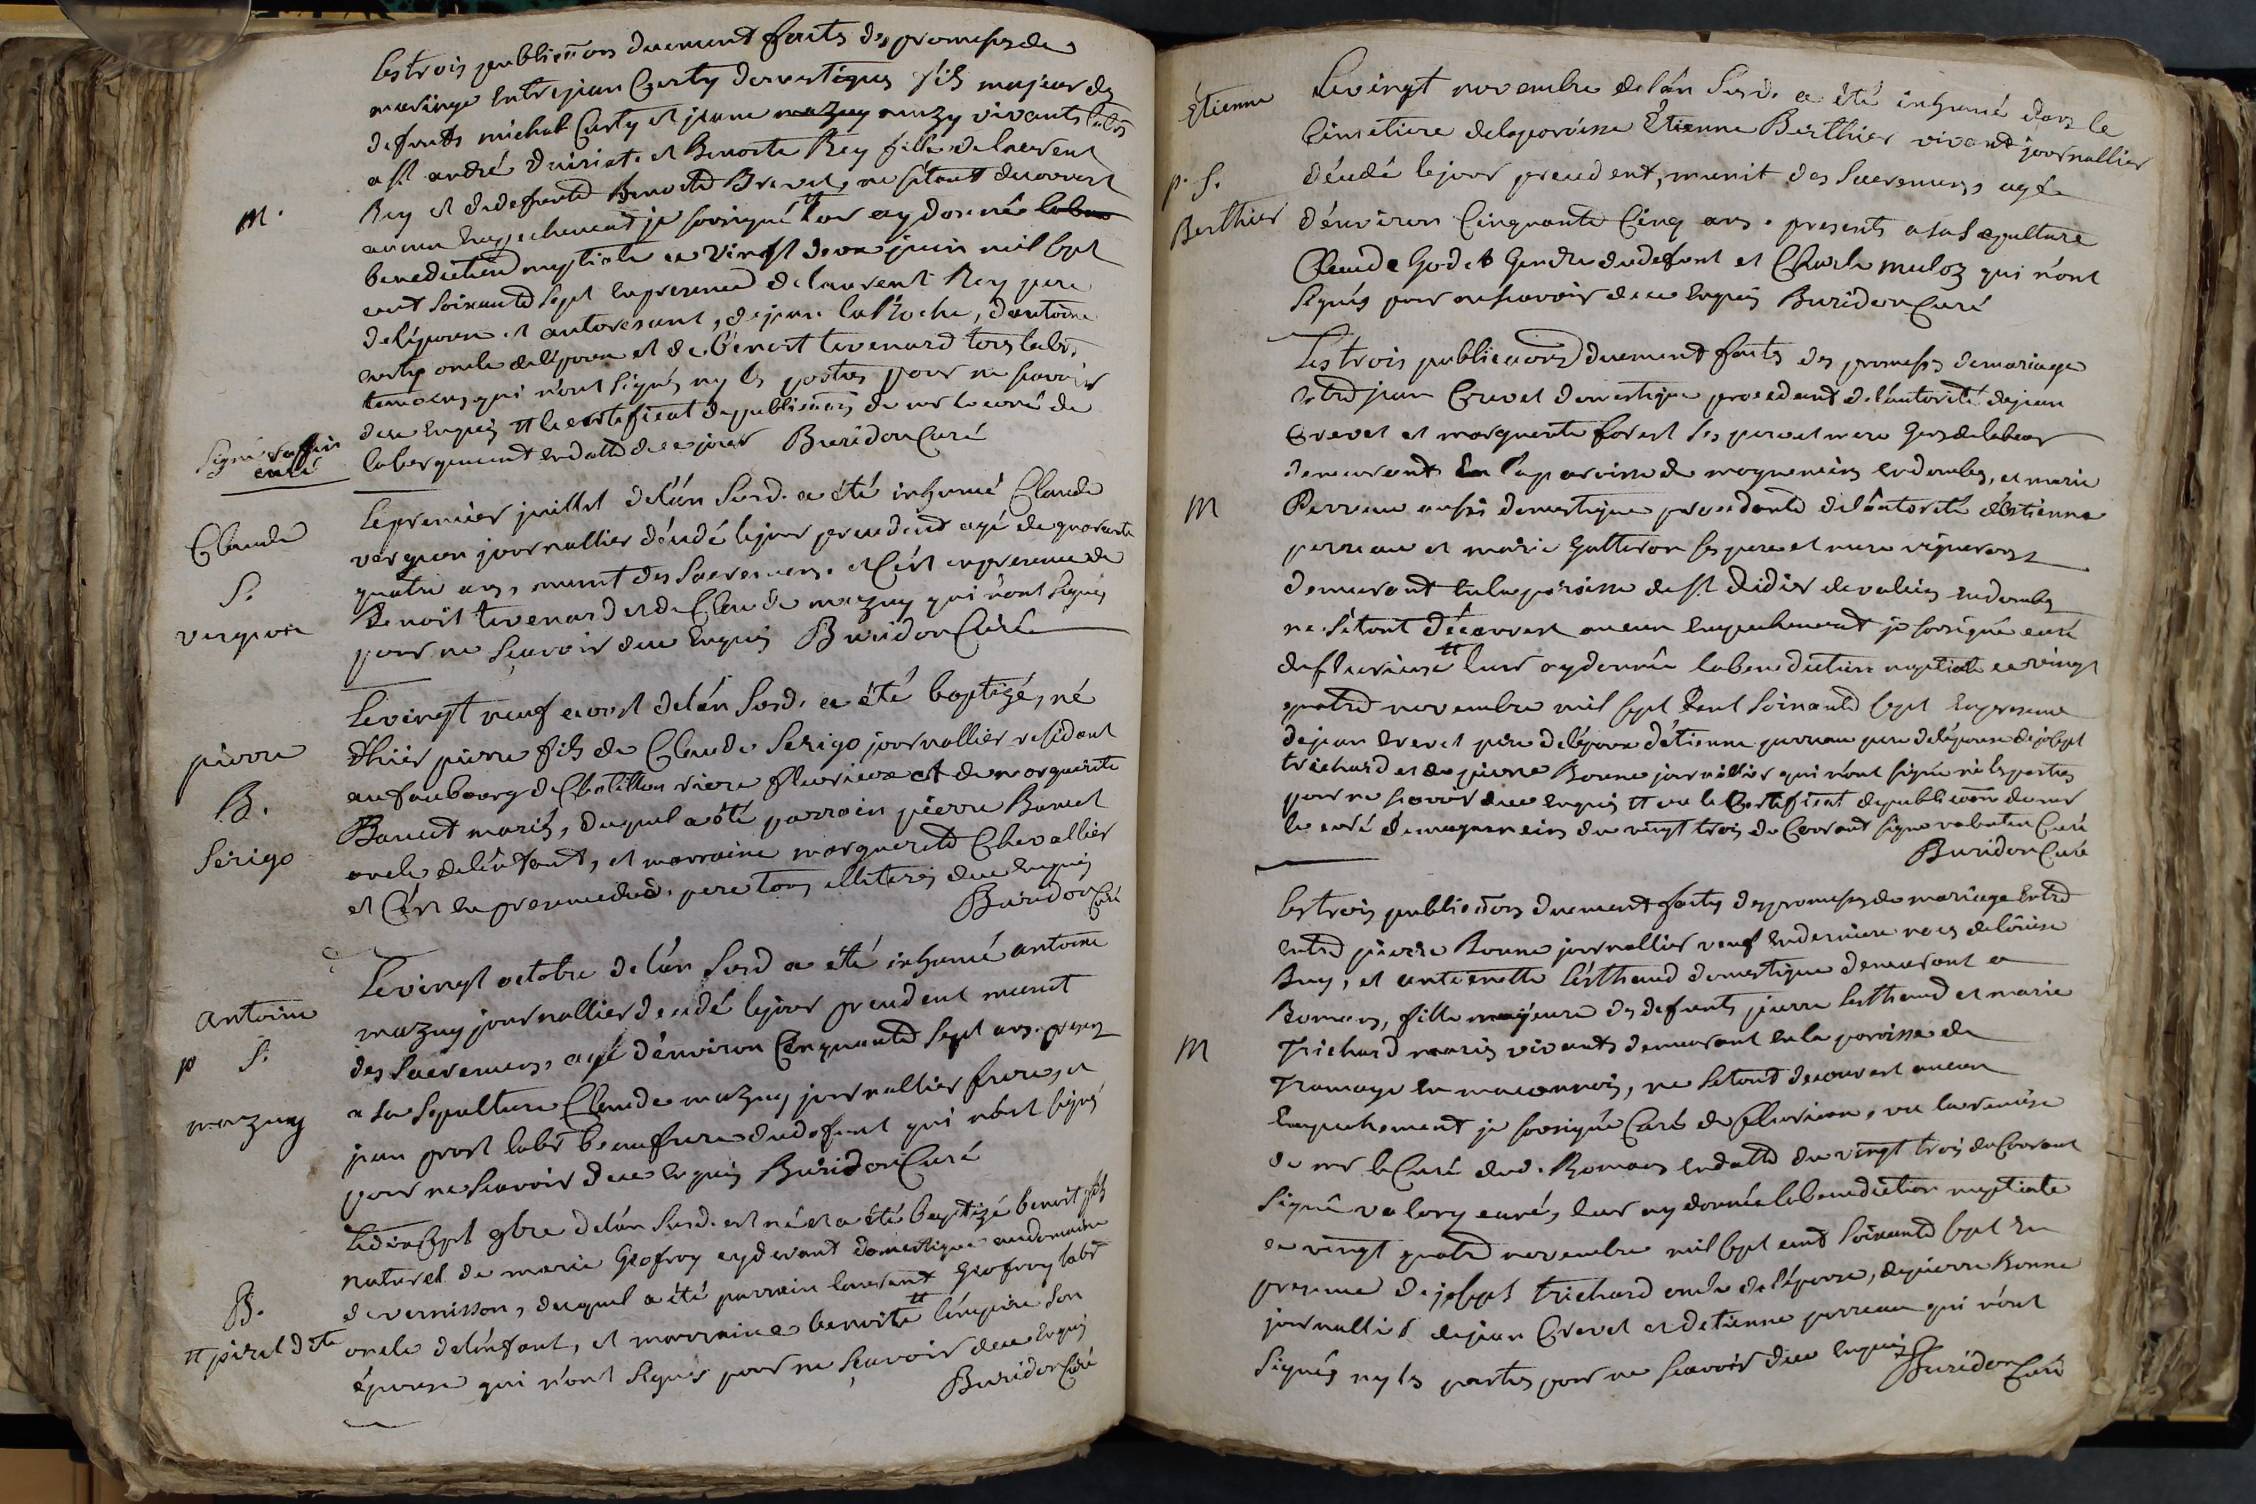 les trois publicõns duement faits des promesses de
mariage entre jean Curty domestique fils majeur des
defunts michel Curty et jeane mazuy mazuy vivants labrs
a st. andré d'uiriat et Benoite Rey fille de laurent
Rey et de defunte Benoite Brevet, ne s'étant decouvert
M.
aucun empechement je sousigné leur ay donné la bene
benediction nuptiale ce vingt deux juin mil sept
cent soixante sept en presence de laurent Rey pere
de l'épouse et autorisant, de jean laRoche, d'antoine
curty oncle de l'époux et de Benoit tevenard tous labrs.
temoins qui n'ont signés ny les parties pour ne scavoir
de ce enquis # le certificat de publicõns de mr le curé de
Signé curé
labergement en datte de ce jour Buridon Curé
Claude
S.
verguon
le premier juillet de l'an susd. a été inhumé Claude
verguon journallier décédé le jour precedent agé de quarante
quatre ans, munit des sacremens. et c'est en presence de
Benoit tevenard et de Claude mazuy qui n'ont signés
pour ne sçavoir de ce enquis Buridon Curé
pierre
B.
Serigo
Le vingt neuf aoust de l'an susd. a été baptizé, né
d'hier pierre fils de Claude Serigo journallier residant
au faubourg de Chatillon riere fleurieux et de marguerite
Banud mariés, duquel a été parrain pierre Banud
oncle de l'enfant, et marraine marguerite Chevallier
et c'est en presence dud. pere tous illiterés de ce enquis
Buridon Curé
antoine
p S.
mazuy
Le vingt octobre de l'an susd a été inhumé antoine
mazuy journallier decedé le jour precedent munit
des sacremens, agé d'environ cinquante sept ans. presens
a sa sepulture Claude mazuy journallier frere, et
jean prost labr beaufrere du defunt qui n'ont signés
pour ne scavoir de ce enquis Buridon Curé
B.
# joirel dite
Le dix sept 9bre de l'an susd. est né et a été baptizé benoit fils
naturel de marie Geofroy cydevant domestique au domaine
de vernisson, duquel a été parrain laurent Geofroy labr
oncle de l'enfant, et marraine benoite # l'empire son
épouse qui n'ont signés pour ne sçavoir de ce enquis
Buridon Curé
Etienne
p. S.
Berthier
Le vingt novembre de l'an susd. a été inhumé dans le
cimetiere de la paroisse Etienne Berthier vivant journallier
décédé le jour precedent, munit des sacremens, agé
d'environ cinquante cinq ans. presents a sa sepulture
Claude Godet gendre du defunt et Charle muloz qui n'ont
signés pour ne scavoir de ce enquis Buridon Curé
Les trois publicaõns duement faits des promesses de mariage
entre jean Crevet domestique procedant de l'autorité de jean
Crevet et marguerite forest ses pere et mere gens de labeur
demeurants en la paroisse de mogneneins en dombes, et marie
M
Perreau aussi domestique procedante de l'autorité d'étienne
perreau et marie Gutteron ses pere et mere vignerons
demeurant en la paroisse de st didier de valeins en dombes
ne s'étant découvert aucun empechement je sousigné curé
de fleurieux # leur ay donné la benediction nuptiale ce vingt
quatre novembre mil sept cent soixante sept en presence
de jean Crevet pere de l'époux d'étienne perreau pere de l'épouse de joseph
trichard et de pierre Bonne journallier qui n'ont signé ni les parties
pour ne scavoir de ce enquis # vu le certificat de publicaõns de mr
le curé de mogneneins du vingt trois du courant signé valentin curé
Buridon Curé
les trois publicõns duement faites des promesses de mariage entre
entre pierre Bonne journallier veuf en derniere noces de loüise
Buy, et antoinette Lesthaud domestique demeurant a
Romans, fille majeure des defunts pierre Lesthaud et marie
M
Trichard mariés vivants demeurant en la paroisse de
Tramaye en maconnois, ne s'étant decouvert aucun
empechement je sousigné Curé de fleurieux, vu la remise
de mr le Curé dud. Romans en datte du vingt trois du courant
signé valory curé, leur ay donné la benediction nuptiale
ce vingt quatre novembre mil sept cent soixante sept en
presence de joseph trichard oncle de l'épouse, de pierre Bonne
journallier de jean Crevet et d'etienne perreau qui n'ont
signés ny les parties pour ne scavoir de ce enquis
Buridon Curé